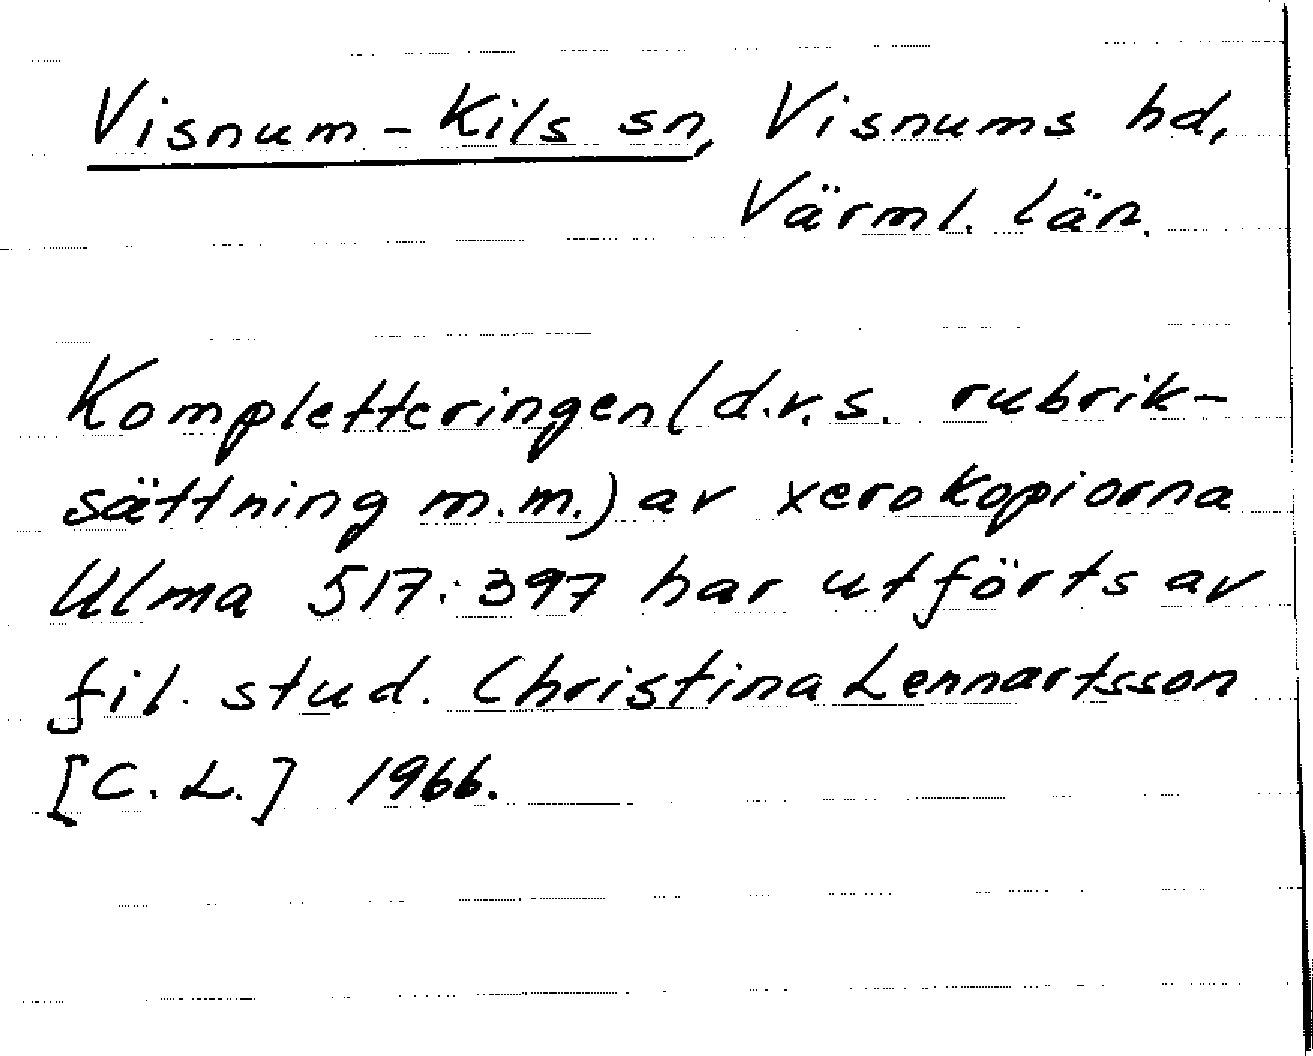 Visnum-Kils sn, Visnums hd,
Värml. län.
Kompletteringen (d.v.s. rubrik-
sättning m.m.) av xerokopiorna
Ulma 517:397 har utförts av
fil. stud. Christina Lennartsson
[C.L.] 1966.